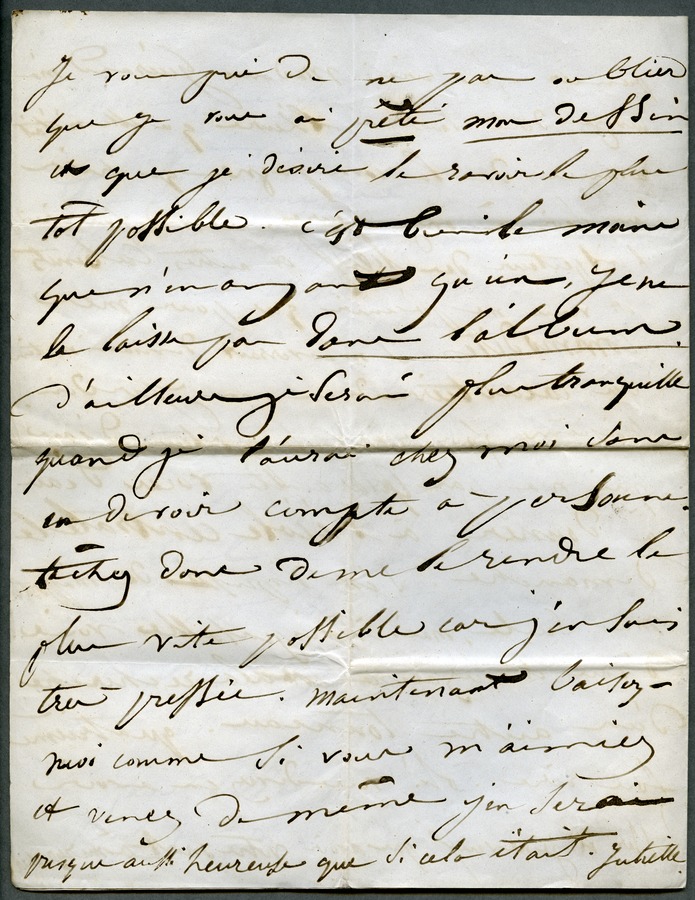 Je vous prie de ne pas oublier
que je vous ai prêté mon dessin
et que je désire le ravoir le plus
tôt possible. c'est bien le moins
que n'en ayant qu'un, je ne
le laisse pas dans l'album.
d'ailleurs je serai plus tranquille
quand je l'aurai chez moi sans
en devoir compte à personne.
tâchez donc de me le rendre le
plus vite possible car j'en suis
très pressée. maintenant baisez-
moi comme si vous m'aimiez
et venez de même j'en serai
presque aussi heureuse que si cela était. Juliette